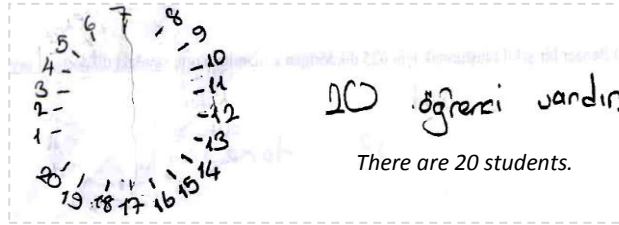 1 2 3 4 5 6 7 8 9 10 11 12 13 14 15 16 17 18 19 20
20 öğrenci vardır
There are 20 students.